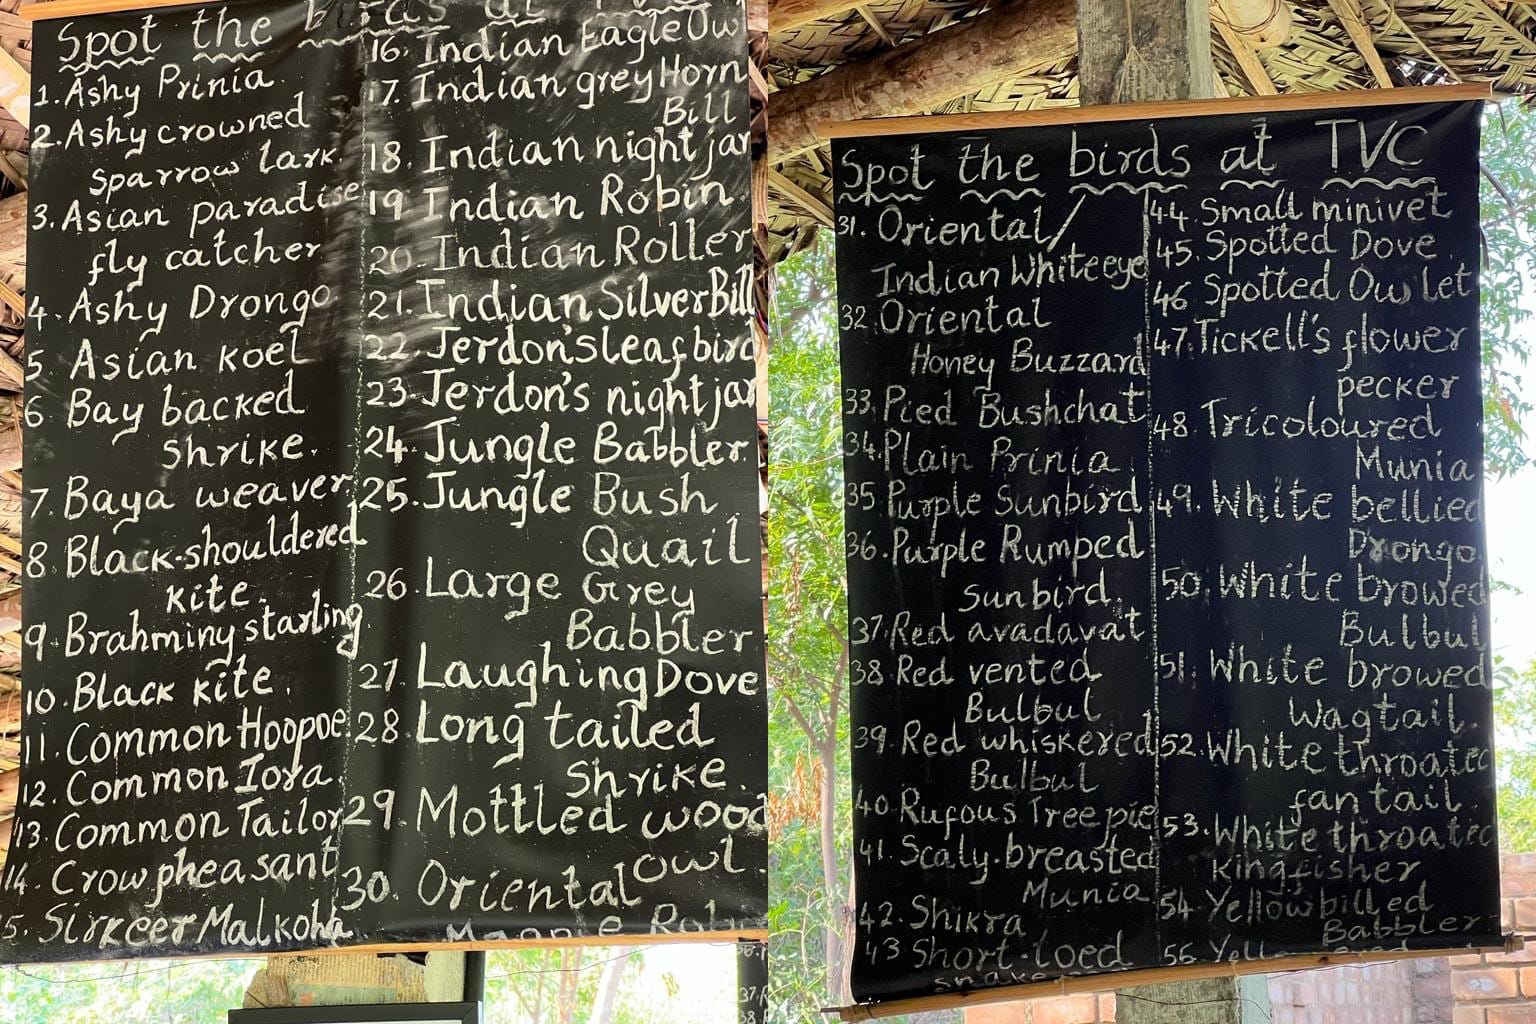 Spot the birds at TVC
1. Ashy Prinia
2. Ashy crowned
sparrow lark.
3. Asian paradise
fly catcher
4. Ashy Drongo
5 Asian koel
6 Bay backed
Shrike.
7. Baya weaver
8 Black-shouldered
kite.
9. Brahminy starling
10. Black kite.
11. Common Hoopoe
12. Common Iora.
13. Common Tailor
14. Crow pheasant
5. Sirkeer Malkoha
16. Indian Eagle Ow
17. Indian grey Horn
Bill
18. Indian night jar
19 Indian Robin.
20. Indian Roller
21. Indian Silver Bill
22. Jerdon's leaf bird
23. Jerdon's night jar
24. Jungle Babbler
25. Jungle Bush
Quail
26. Large Grey
Babbler
27. Laughing Dove
28. Long tailed
Shrike.
29. Mottled wood
Owl.
30. Oriental
Magpie Robin
Spot the birds at TVC
31. Oriental/
Indian White eye
32. Oriental
Honey Buzzard
33. Pied Bushchat
34. Plain Prinia
35. Purple Sunbird
36. Purple Rumped
Sunbird.
37. Red avadavat
38 Red vented
Bulbul
39. Red whiskered
Bulbul
40. Rufous Tree pie
41. Scaly-breasted
Munia
42. Shikra
43 Short-toed
snake
44. Small minivet
45. Spotted Dove
46 Spotted Owlet
47. Tickell's flower
pecker
48. Tricoloured
Munia
49. White bellied
Drongo
50. White browed
Bulbul
51. White browed
Wagtail.
52. White throated
fan tail.
53. White throated
kingfisher
54 Yellow billed
Babbler
55 Yell